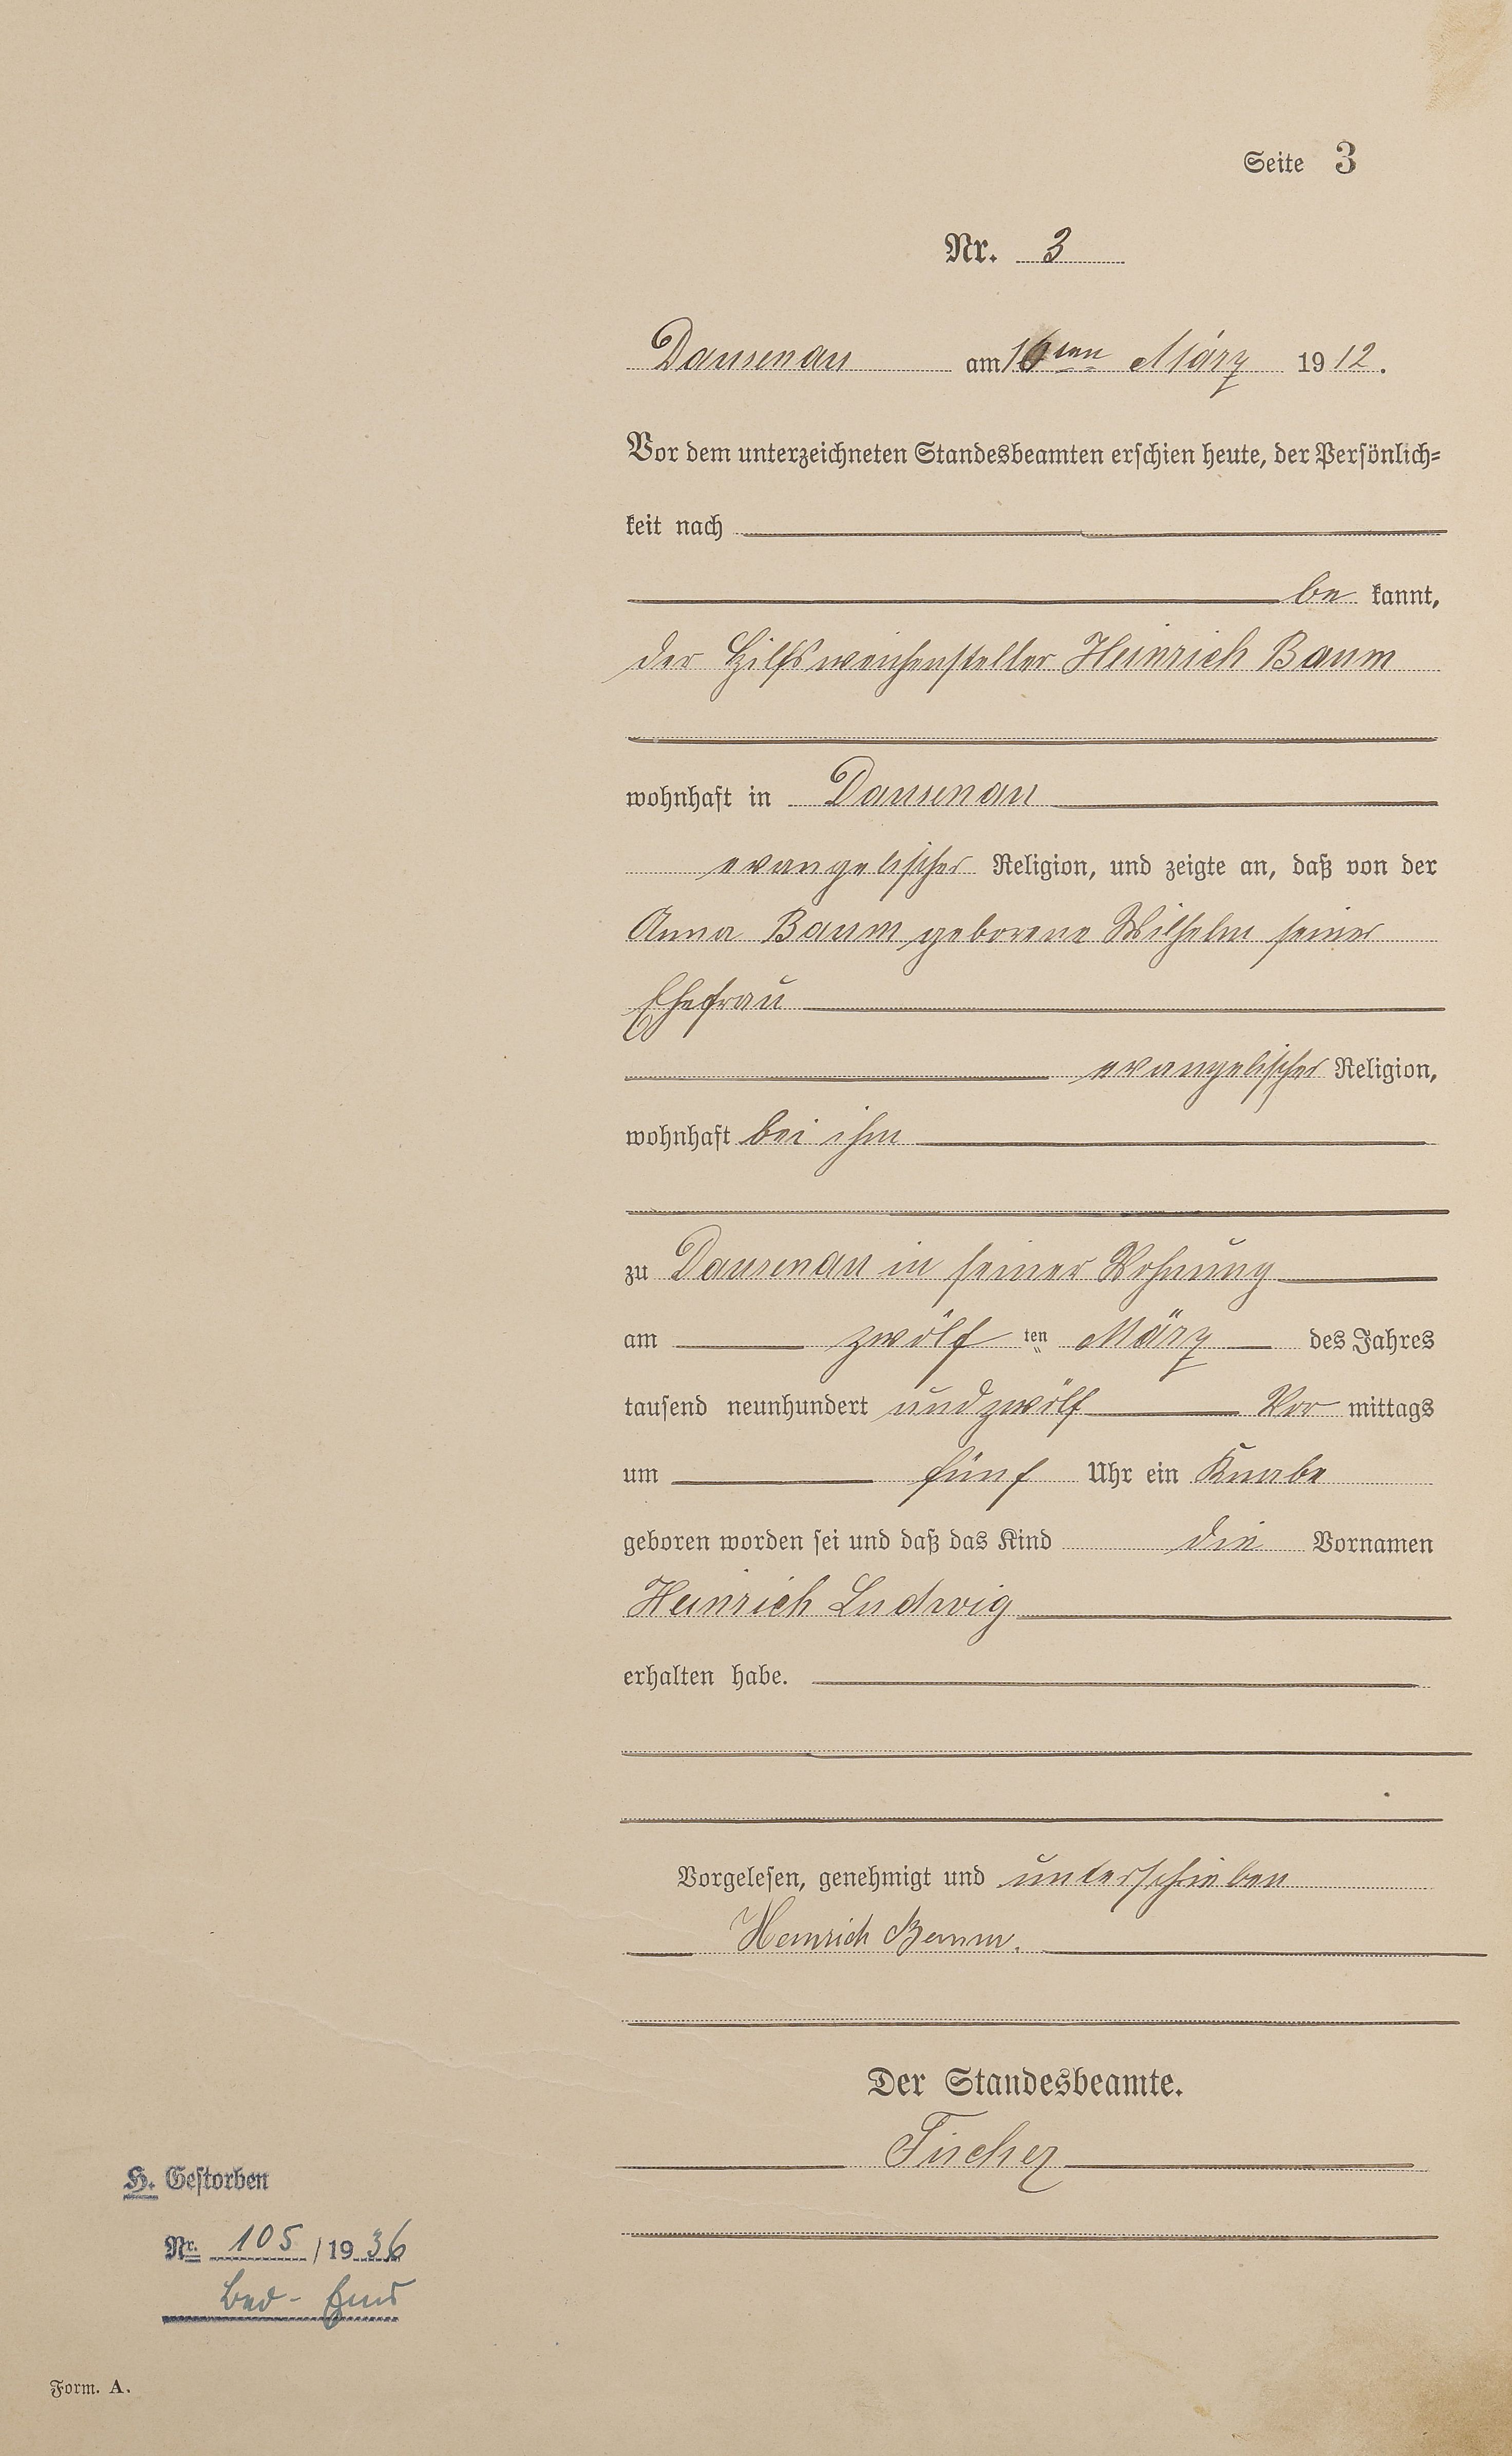 Seite 3
Nr. 3
Dausenau am 16ten März 1912.
Vor dem unterzeichneten Standesbeamten erschien heute, der Persönlich=
keit nach
be kannt,
der Hilfsweichensteller Heinrich Baum
wohnhaft in Dausenau
evangelischer Religion, und zeigte an, daß von der
Anna Baum geborene Wilhelm seiner
Ehefrau
evangelischer Religion,
wohnhaft bei ihm
zu Dausenau in seiner Wohnung
am zwölf ten März des Jahres
tausend neunhundert und zwölf Vor mittags
um fünf Uhr ein Knabe
geboren worden sei und daß das Kind die Vornamen
Heinrich Ludwig
erhalten habe.
Vorgelesen, genehmigt und unterschrieben
Heinrich Baum.
Der Standesbeamte.
Fischer
H. Gestorben
Nr. 105 / 1936
Bad-Ems
Form. A.